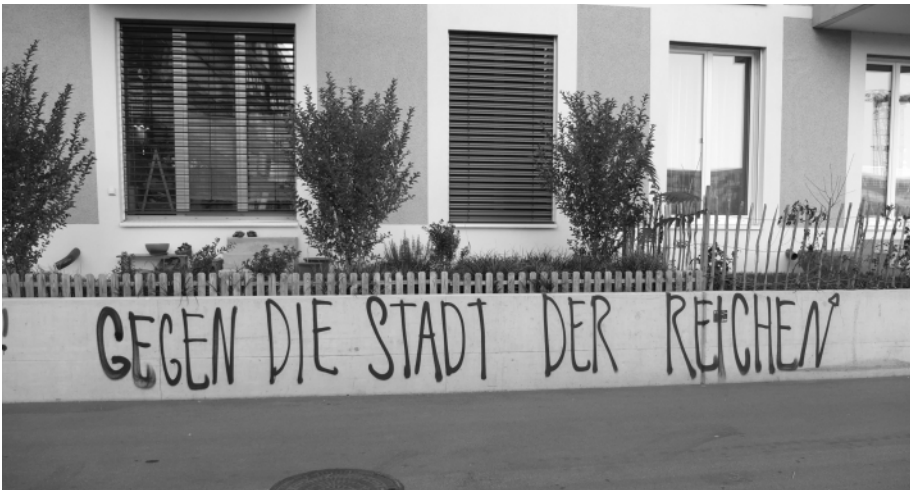 GEGEN DIE STADT DER REICHEN